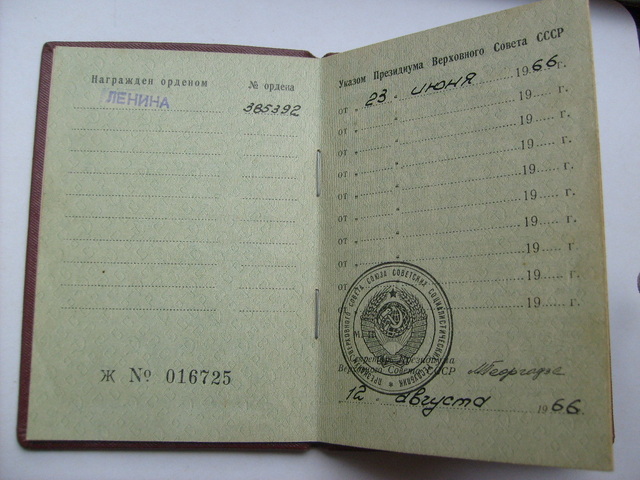 Награжден орденом № ордена
ЛЕНИНА 385392
Ж № 016725
Указом Президиума Верховного Совета СССР
от „ 23 „ июня 1966 г.
от „ „ 19 г.
от „ „ 19 г.
от „ „ 19 г.
от „ „ 19 г.
от „ „ 19 г.
от „ „ 19 г.
от „ „ 19 г.
от „ „ 19 г.
ПРЕЗИДИУМ ВЕРХОВНОГО СОВЕТА СОЮЗА СОВЕТСКИХ СОЦИАЛИСТИЧЕСКИХ РЕСПУБЛИК
М. П.
Секретарь Президиума
Верховного Совета СССР
12 августа 1966.